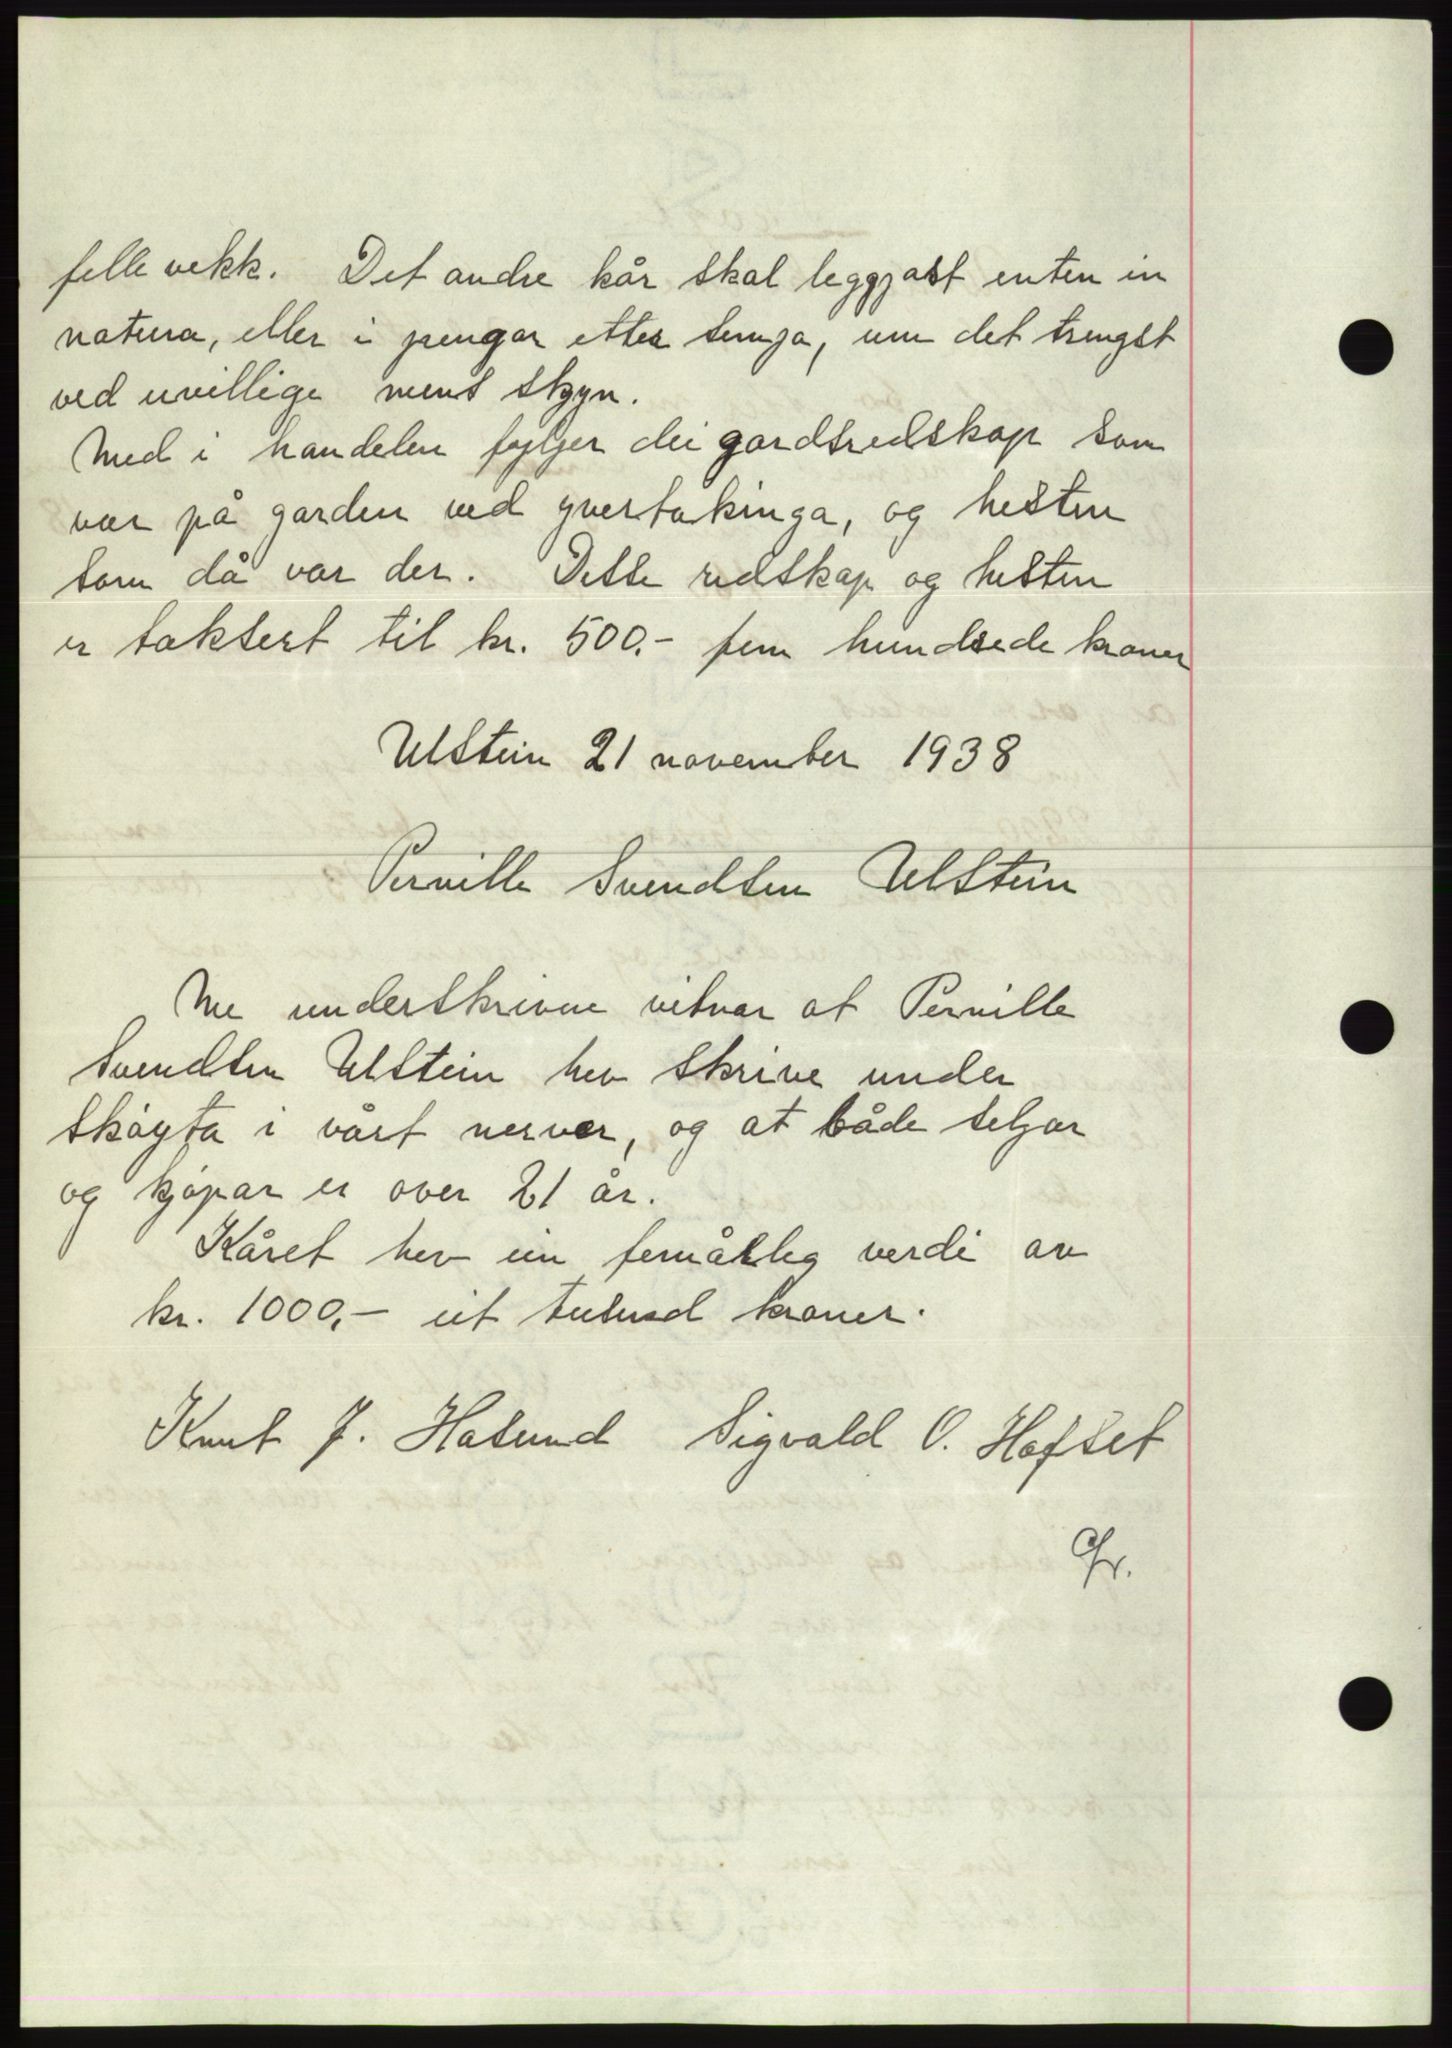 felle vekk. Det andre kår skal leggjast enten in
natura, eller i pengar etter semja, um det trengst
ved uvillige mens skyn.
Med i handelen fylgjer dei gardsredskap som
var på garden ved yvertakinga, og hesten
som då var der. Dette redskap og hesten
er taksert til kr. 500.- fem hundrede kroner
Ulstein 21 november 1938
Pernille Svendsen Ulstein
Me underskrivne vitnar at Pernille
Svendsen Ulstein hev skrive under
skøyta i vårt nerver, og at både seljar
og kjøpar er over 21 år.
Kåret hev ein femårleg verdi av
kr. 1000,- eit tusund kroner.
Knut J. Hasund Sigvald O. Hofset
Gr.